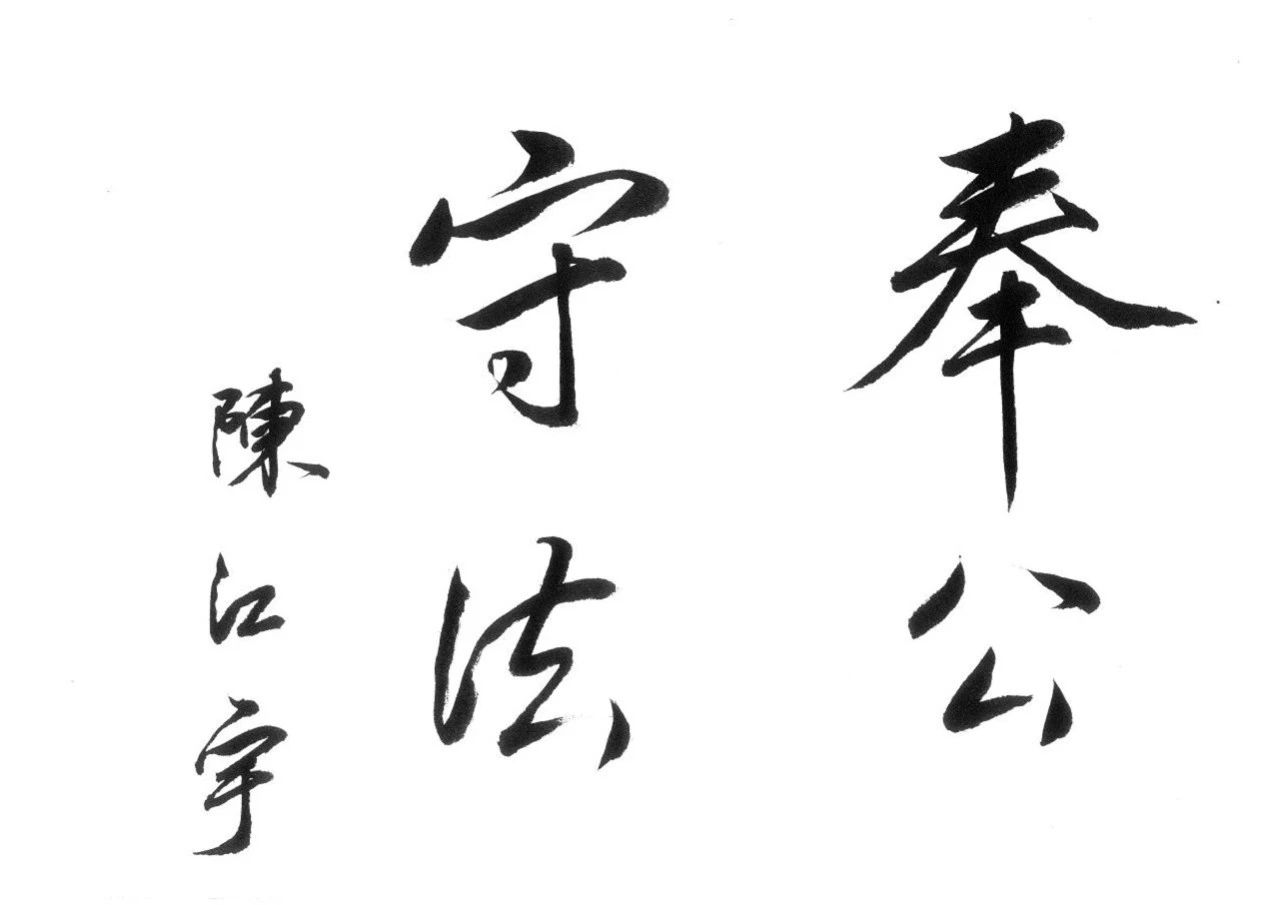 奉公
守法
陳江宇